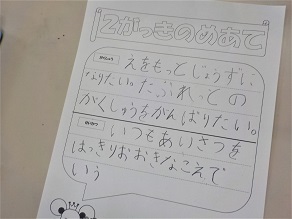 2がっきのめあて
えをもっとじょうずに
なりたい。たぶれっとの
がくしゅうをがんばりたい。
いつもあいさつを
はっきりおおきなこえで
いう